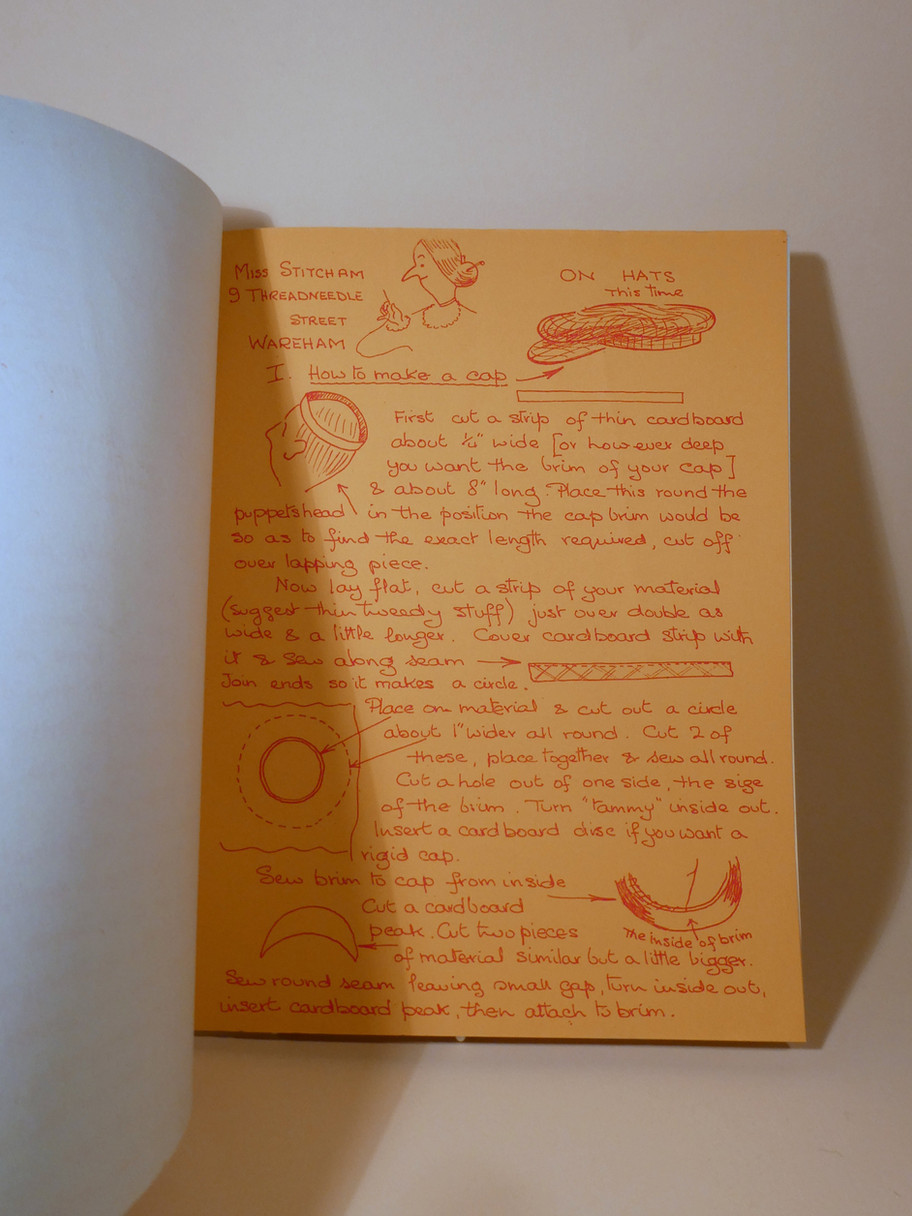 Miss STITCHAM
9 THREADNEEDLE
STREET
WAREHAM
ON HATS
This time
I. How to make a cap
First cut a strip of thin cardboard
about ¼" wide [or however deep
you want the brim of your cap]
& about 8" long. Place this round the
puppets head in the position the cap brim would be
so as to find the exact length required, cut off
over lapping piece.
Now lay flat, cut a strip of your material
(suggest thin tweedy stuff) just over double as
wide & a little longer. Cover cardboard strip with
it & sew along seam
Join ends so it makes a circle.
Place on material & cut out a circle
about 1" wider all round. Cut 2 of
these, place together & sew all round.
Cut a hole out of one side, the size
of the brim. Turn "tammy" inside out.
Insert a cardboard disc if you want a
rigid cap.
Sew brim to cap from inside
Cut a cardboard
peak. Cut two pieces
the inside of brim
of material similar but a little bigger.
Sew round seam leaving small gap, turn inside out,
insert cardboard peak, then attach to brim.